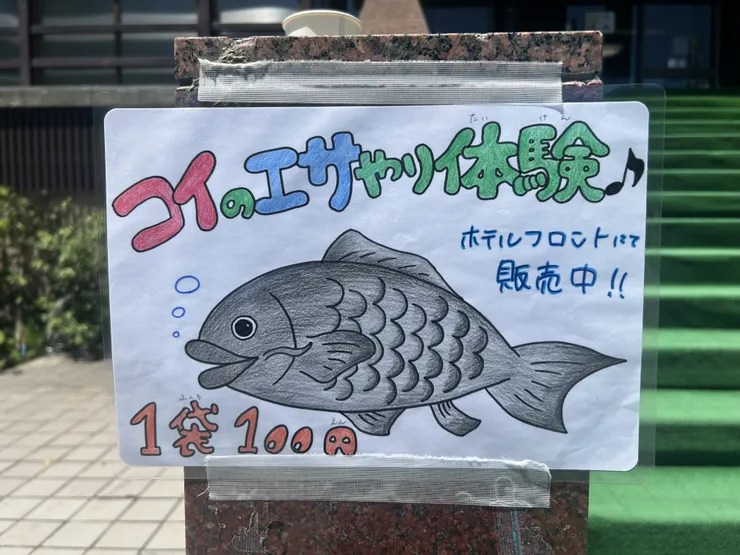 たいけん
コイのエサやり体験♪
ホテルフロントにて
販売中!!
ふくろ えん
1袋 100円